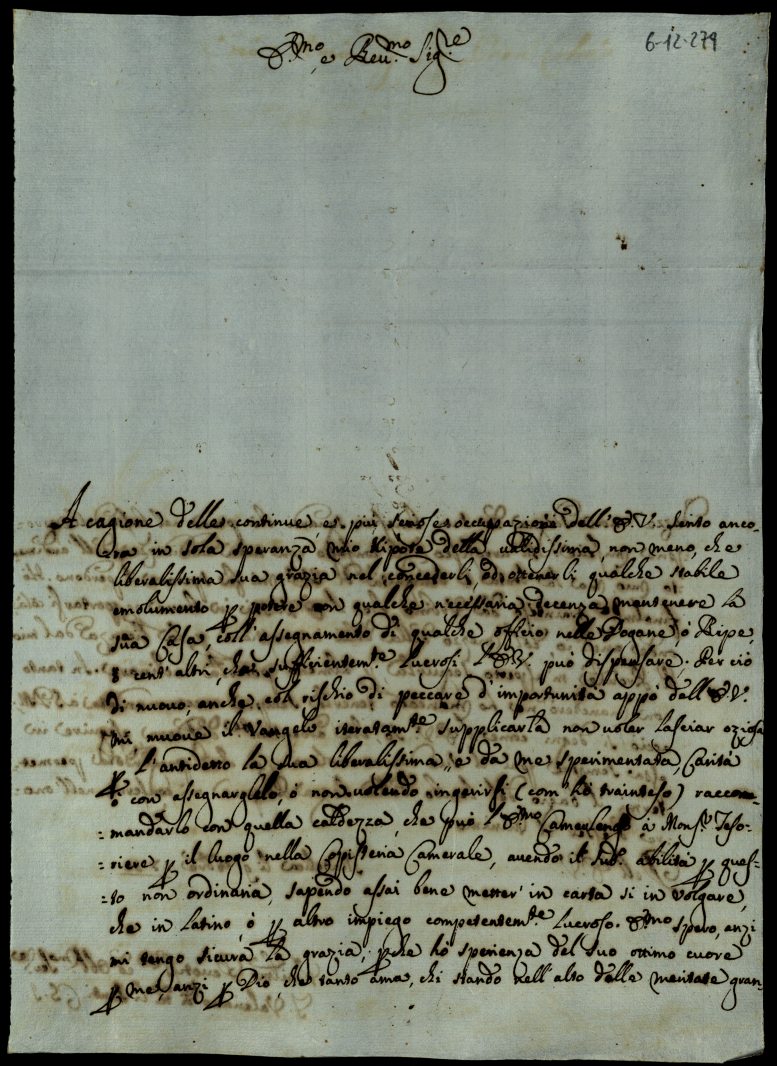 6-12-279
E.mo e Reu.mo Sig.re
A cagione delle continue, e più seriose occupazioni dell'E.V. sento anco-
-ra in sola speranza, mio Nipote della validissima, non meno, che
liberalissima sua grazia nel concederli, od ottenerli qualche stabile
emolumento p potere con qualche necessaria decenza mantenere la
sua Casa, coll'assegnamento di qualche officio nelle Dogane, ó Ripe,
ó cent'altri, che sufficientem.te lucrosi l'E.V. può dispensare. Per ciò
di nuovo, anche col rischio di peccare d'importunità appò dell'E.V.
mi muove il Vangelo iteratam.te supplicarla non voler lasciar oziosa
l'antidetto la sua liberalissima, e da me sperimentata, Carità
ó con assegnarglelo, ó non volendo ingerirsi (com'hò trainteso) raccom-
-mandarlo con quella caldezza, che può l'E.mo Camerlengo à Mons.r Teso-
-riere p il luogo nella Copisteria Camerale, avendo il sud.o abilità p ques-
-to non ordinaria, sapendo assai bene metter' in carta si in volgare,
che in Latino ó p altro impiego competentem.te lucroso. E.mo spero, anzi
mi tengo sicura la grazia, pche hò sperienza del suo ottimo cuore
p me, anzi p Dio, che tanto ama, chi stando nell'alto delle meritate gran-